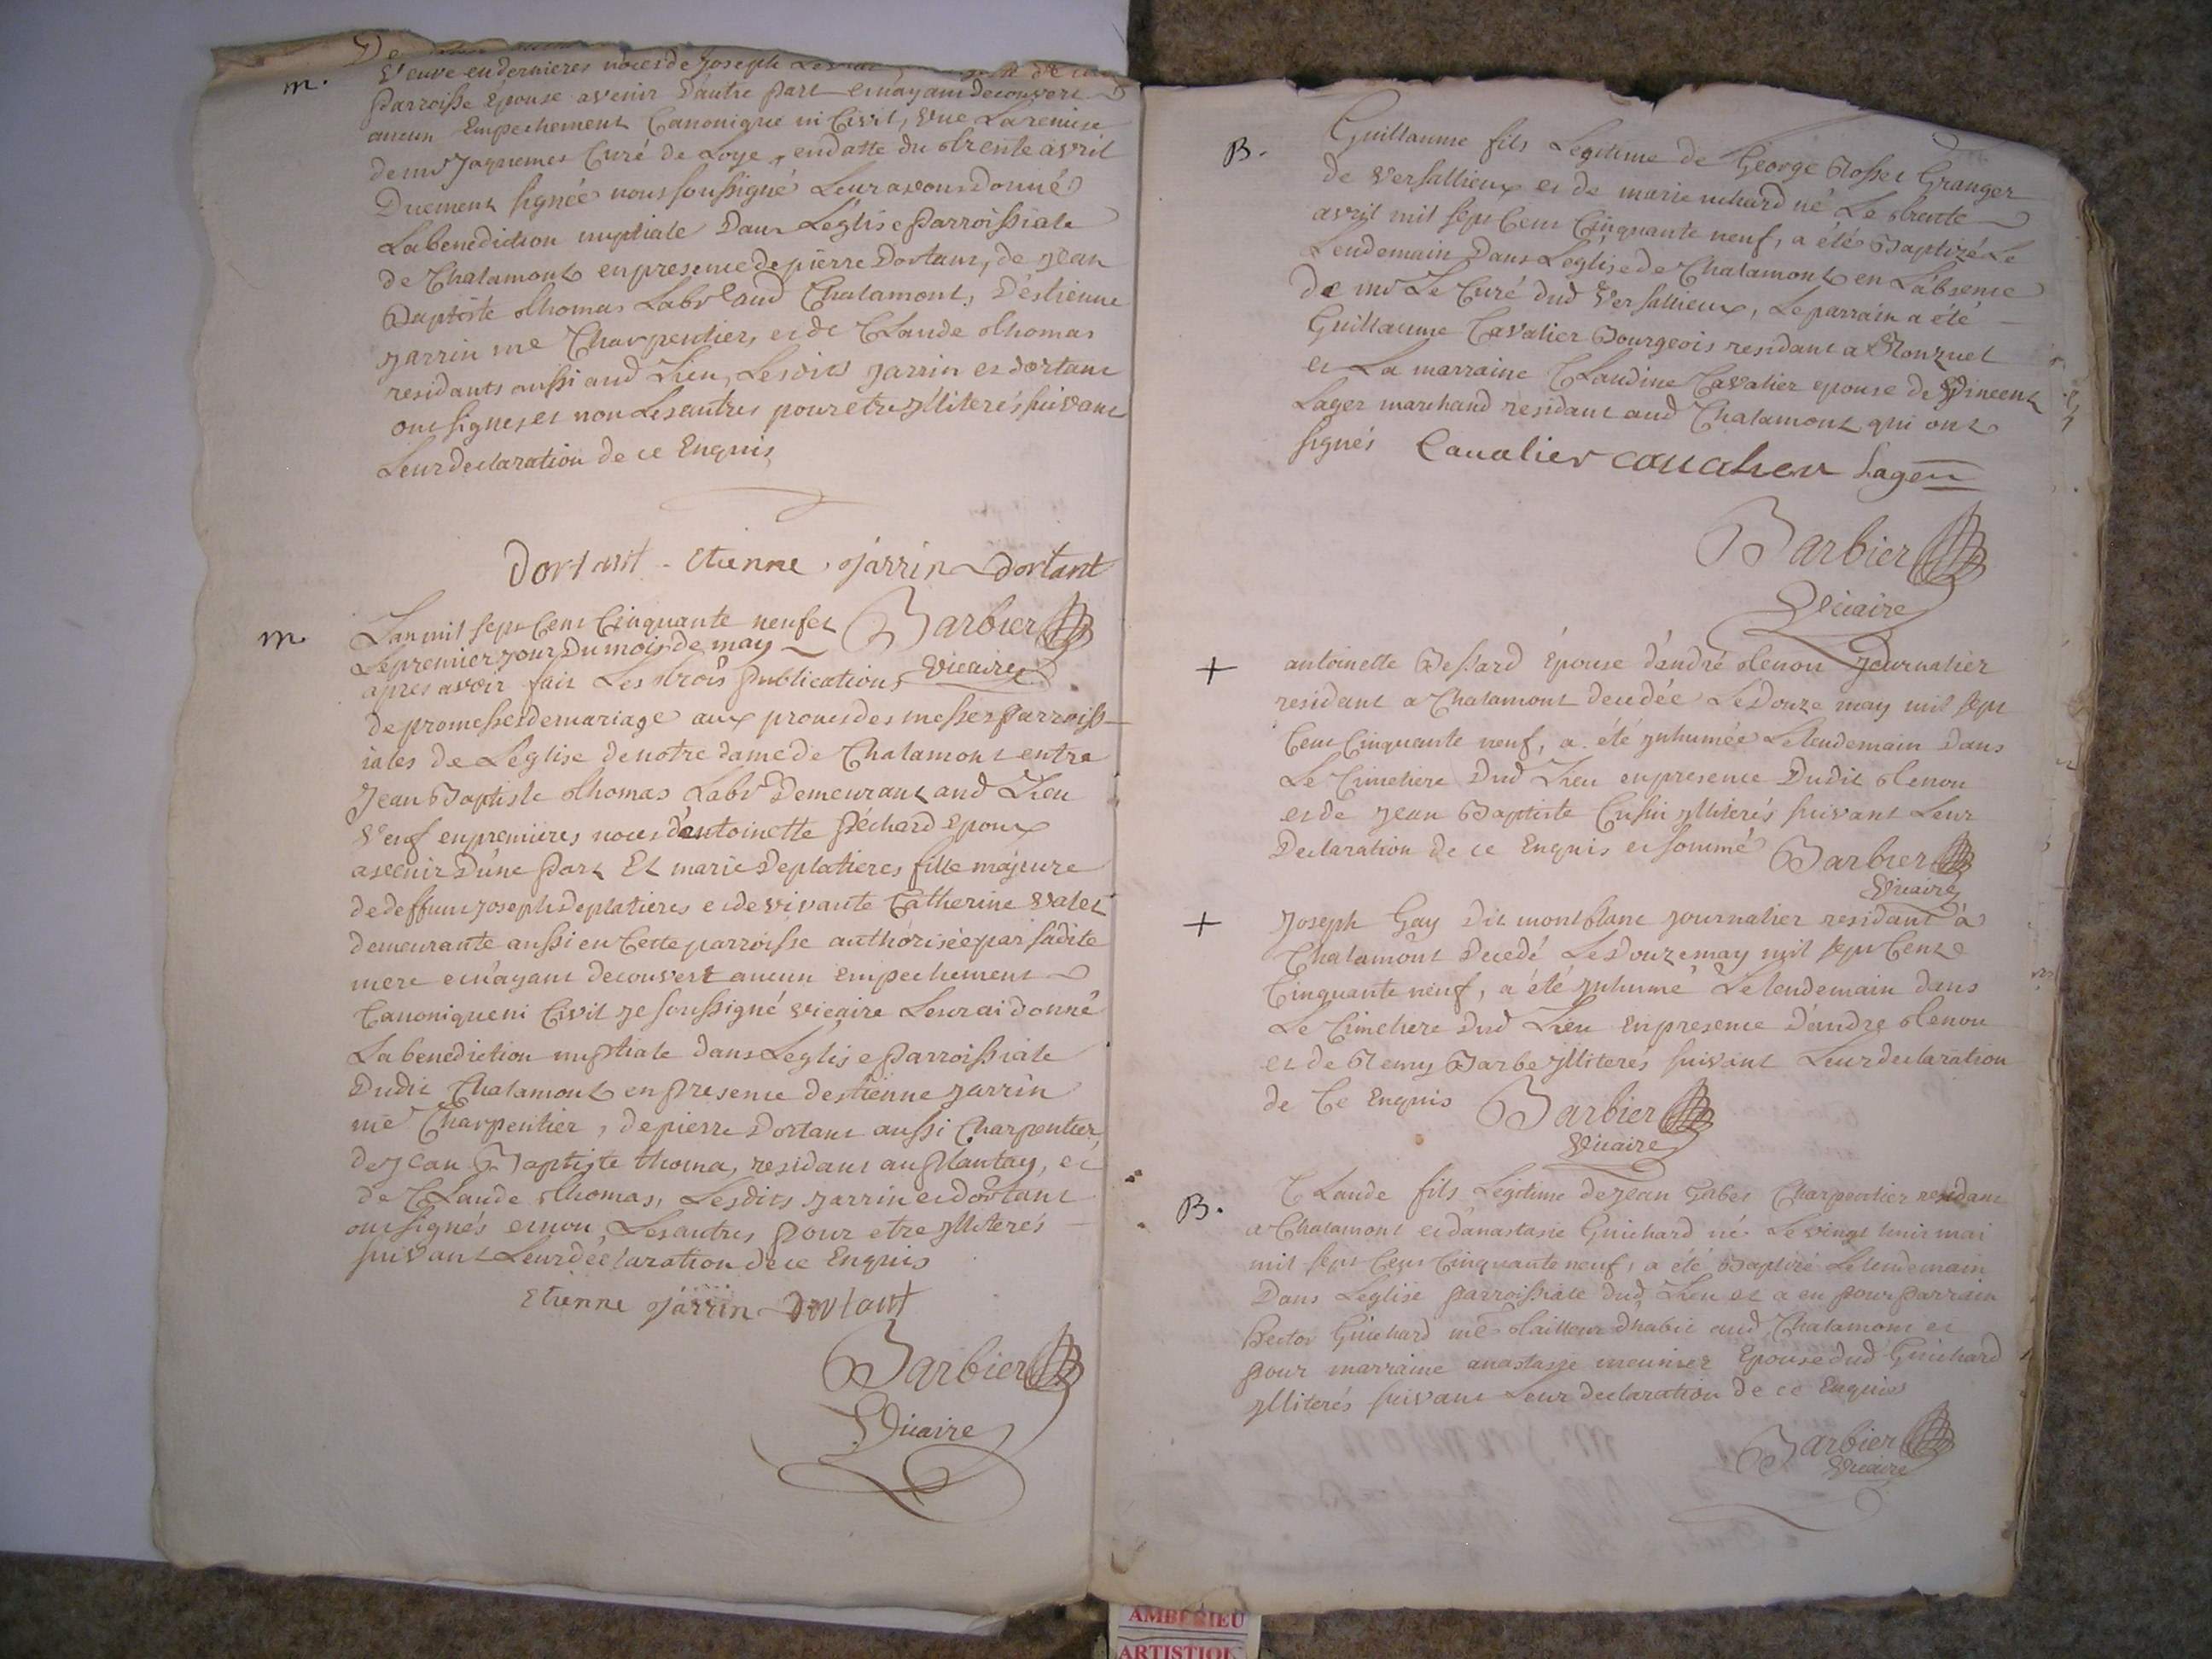 m.
De
Veuve en dernieres noces de Joseph
parroisse Epouse avenir d'autre part et n'ayant decouvert
aucun Empechement Canonique ni Civil, Vue La remise
de mr Jaquemes Curé de Loye, en datte du trente avril
Duement signée nous soussigné Leur avons donné
La benediction nuptiale Dans L'église parroissiale
de Chalamont en presence de pierre Dortant, de Jean
Baptiste Thomas Labr aud Chalamont, d'éstienne
Jarrin me Charpentier, et de Claude Thomas
residants aussi aud Lieu, Lesdits Jarrin et dortant
ont signes et non Les autres pour etre illiterés suivant
Leur declaration de ce Enquis
Dortant - Etienne jarrin Dortant
Barbier
Vicaire
m.
L'an mil sept Cent Cinquante neuf et
Le premier jour Du mois de may
apres avoir fait Les trois publications
de promesses de mariage aux prones des messes parroiss-
iales de L'eglise de notre dame de Chalamont entre
Jean Baptiste Thomas Labr Demeurant aud Lieu
Veuf en premieres noces d'antoinette Péchard Epoux
avenir D'une part Et marie Deplatieres fille majeure
de deffunt Joseph Deplatieres et de vivante Catherine Valet
demeurante aussi en Cette parroisse authorisée par sadite
mere et n'ayant decouvert aucun empechement
Canonique ni Civil je soussigné vicaire Leur ai donné
La benediction nuptiale dans L'eglise parroissiale
Dudit Chalamont en presence destienne Jarrin
me Charpentier, de pierre Dortant aussi Charpentier,
de Jean Baptiste thoma, residant au plantay, et
de Claude Thomas, Lesdits Jarrin et dortant
ont signés et non Les autres pour etre illiterés
suivant Leur déclaration de ce Enquis
Etienne jarrin Dortant
Barbier
Vicaire
B.
Guillaume fils Legitime de George Rosset Granger
de Versallieux et de marie richard né Le trente
avril mil sept Cent Cinquante neuf, a été Baptizé Le
Lendemain Dans L'église de Chalamont en L'absence
de mr Le Curé dud Versallieux, Le parrain a été
Guillaume Cavalier Bourgeois residant a Monzuel
et La marraine Claudine Cavalier epouse de Vincent
Lager marchand residant aud Chalamont qui ont
signés Caualier caualier Lager
Barbier
Vicaire
+
antoinette Bessard Epouse d'andré Tenon Journalier
residant a Chalamont decedée Le Douze may mil sept
Cent Cinquante neuf, a été inhumée Le lendemain Dans
Le Cimetiere Dud Lieu en presence Dudit Tenon
et de Jean Baptiste Cusin illiterés suivant Leur
Declaration de ce Enquis et sommé Barbier
Vicaire
+
Joseph Gay dit montblanc journalier residant à
Chalamont Decedé Le Douze may mil sept Cent
Cinquante neuf, a été inhumé Le lendemain dans
Le Cimetiere Dud Lieu En presence D'andré Tenon
et de Remy Barbe illiterés suivant Leur declaration
de Ce Enquis Barbier
Vicaire
B.
Claude fils Legitime de Jean Gabet Charpentier residant
a Chalamont et d'anastasie Guichard né Le vingt huit mai
mil sept Cent Cinquante neuf, a été Baptizé Le lendemain
Dans L'eglise parroissiale dud Lieu et a eu pour parrain
hector Guichard me tailleur d'habit aud Chalamont et
pour marraine anastasie meunier Epouse dud Guichard
illiterés suivant Leur declaration de ce Enquis
Barbier
Vicaire
AMBERIEU
ARTISTIQU